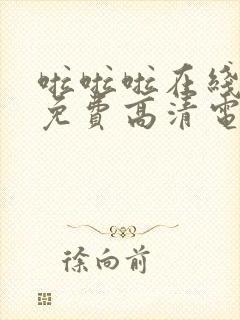 啦啦啦在线
免費高清電
徐向前